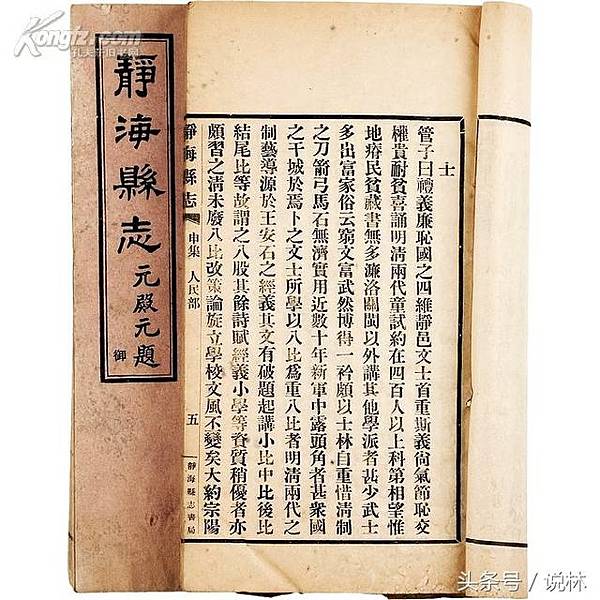 Kongfz.com
孔夫子旧书网
靜海縣志
元殿元題
御
士
管子曰禮義廉恥國之四維靜邑文士首重斯義尙氣節恥交
權貴耐貧喜誦明清兩代童試約在四百人以上科第相望惟
地瘠民貧藏書無多濂洛關閩以外講其他學派者甚少武士
多出富家俗云窮文富武然博得一衿頗以士林自重惜清制
之刀箭弓馬石無濟實用近數十年新軍中露頭角者甚衆國
之干城於焉卜之文士所學以八比爲重八比者明清兩代之
制藝導源於王安石之經義其文有破題起講小比中比後比
結尾比等故謂之八股其餘詩賦經義小學等資質稍優者亦
頗習之清末廢八比改策論旋立學校文風不變矣大約宗陽
靜海縣志
申集
人民部
五
靜海縣志書局
头条号/说林